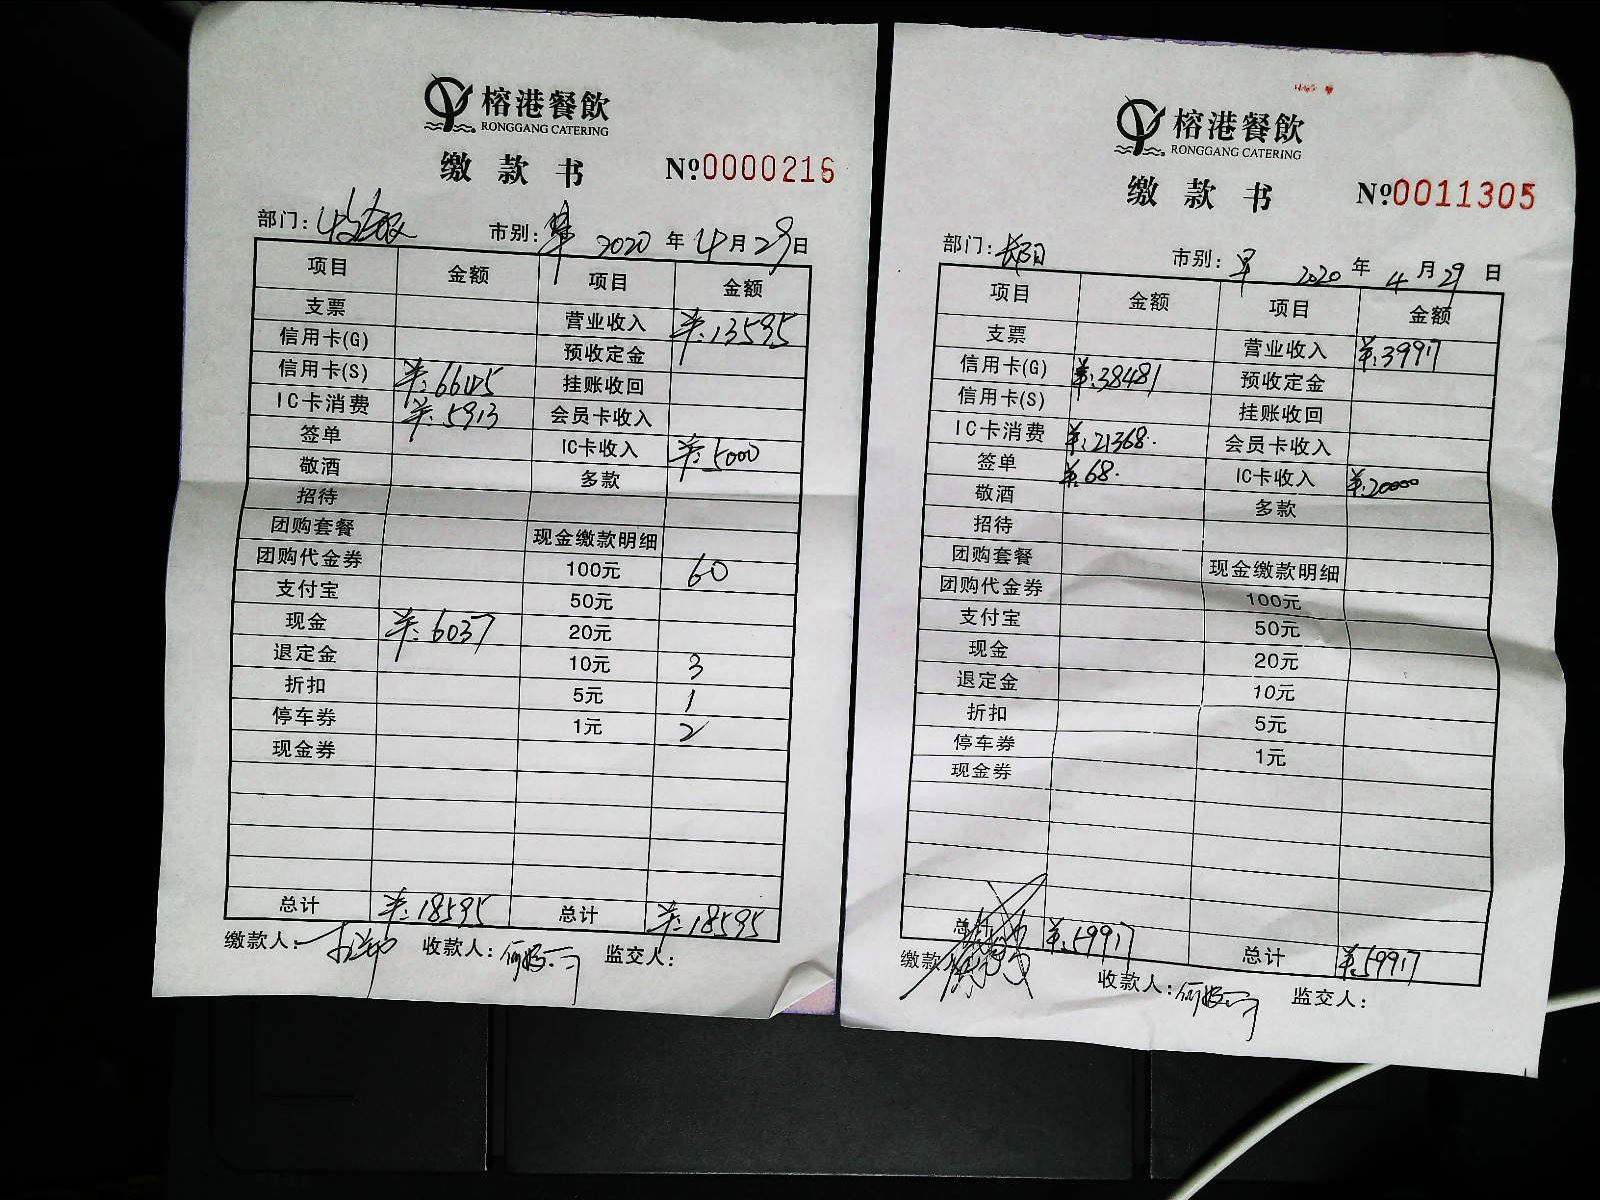 榕港餐飲
RONGGANG CATERING
缴款书 №0000216
部门: 市别: 2020年4月29日
项目 金额 项目 金额
支票 营业收入 ¥:13595
信用卡(G) 预收定金
信用卡(S) ¥:6645 挂账收回
IC卡消费 ¥:5913 会员卡收入
签单 IC卡收入 ¥:5000
敬酒 多款
招待
团购套餐 现金缴款明细
团购代金券 100元 60
支付宝 50元
现金 ¥:6037 20元
退定金 10元 3
折扣 5元 1
停车券 1元 2
现金券
总计 ¥:18595 总计 ¥:18595
缴款人: 收款人: 监交人:
榕港餐飲
RONGGANG CATERING
缴款书 №0011305
部门: 市别:早 2020年4月29日
项目 金额 项目 金额
支票 营业收入 ¥:39917
信用卡(G) ¥:38481 预收定金
信用卡(S) 挂账收回
IC卡消费 ¥:21368. 会员卡收入
签单 ¥:68. IC卡收入 ¥:20000
敬酒 多款
招待
团购套餐 现金缴款明细
团购代金券 100元
支付宝 50元
现金 20元
退定金 10元
折扣 5元
停车券 1元
现金券
总计 ¥:59917 总计 ¥:59917
缴款人 收款人: 监交人: